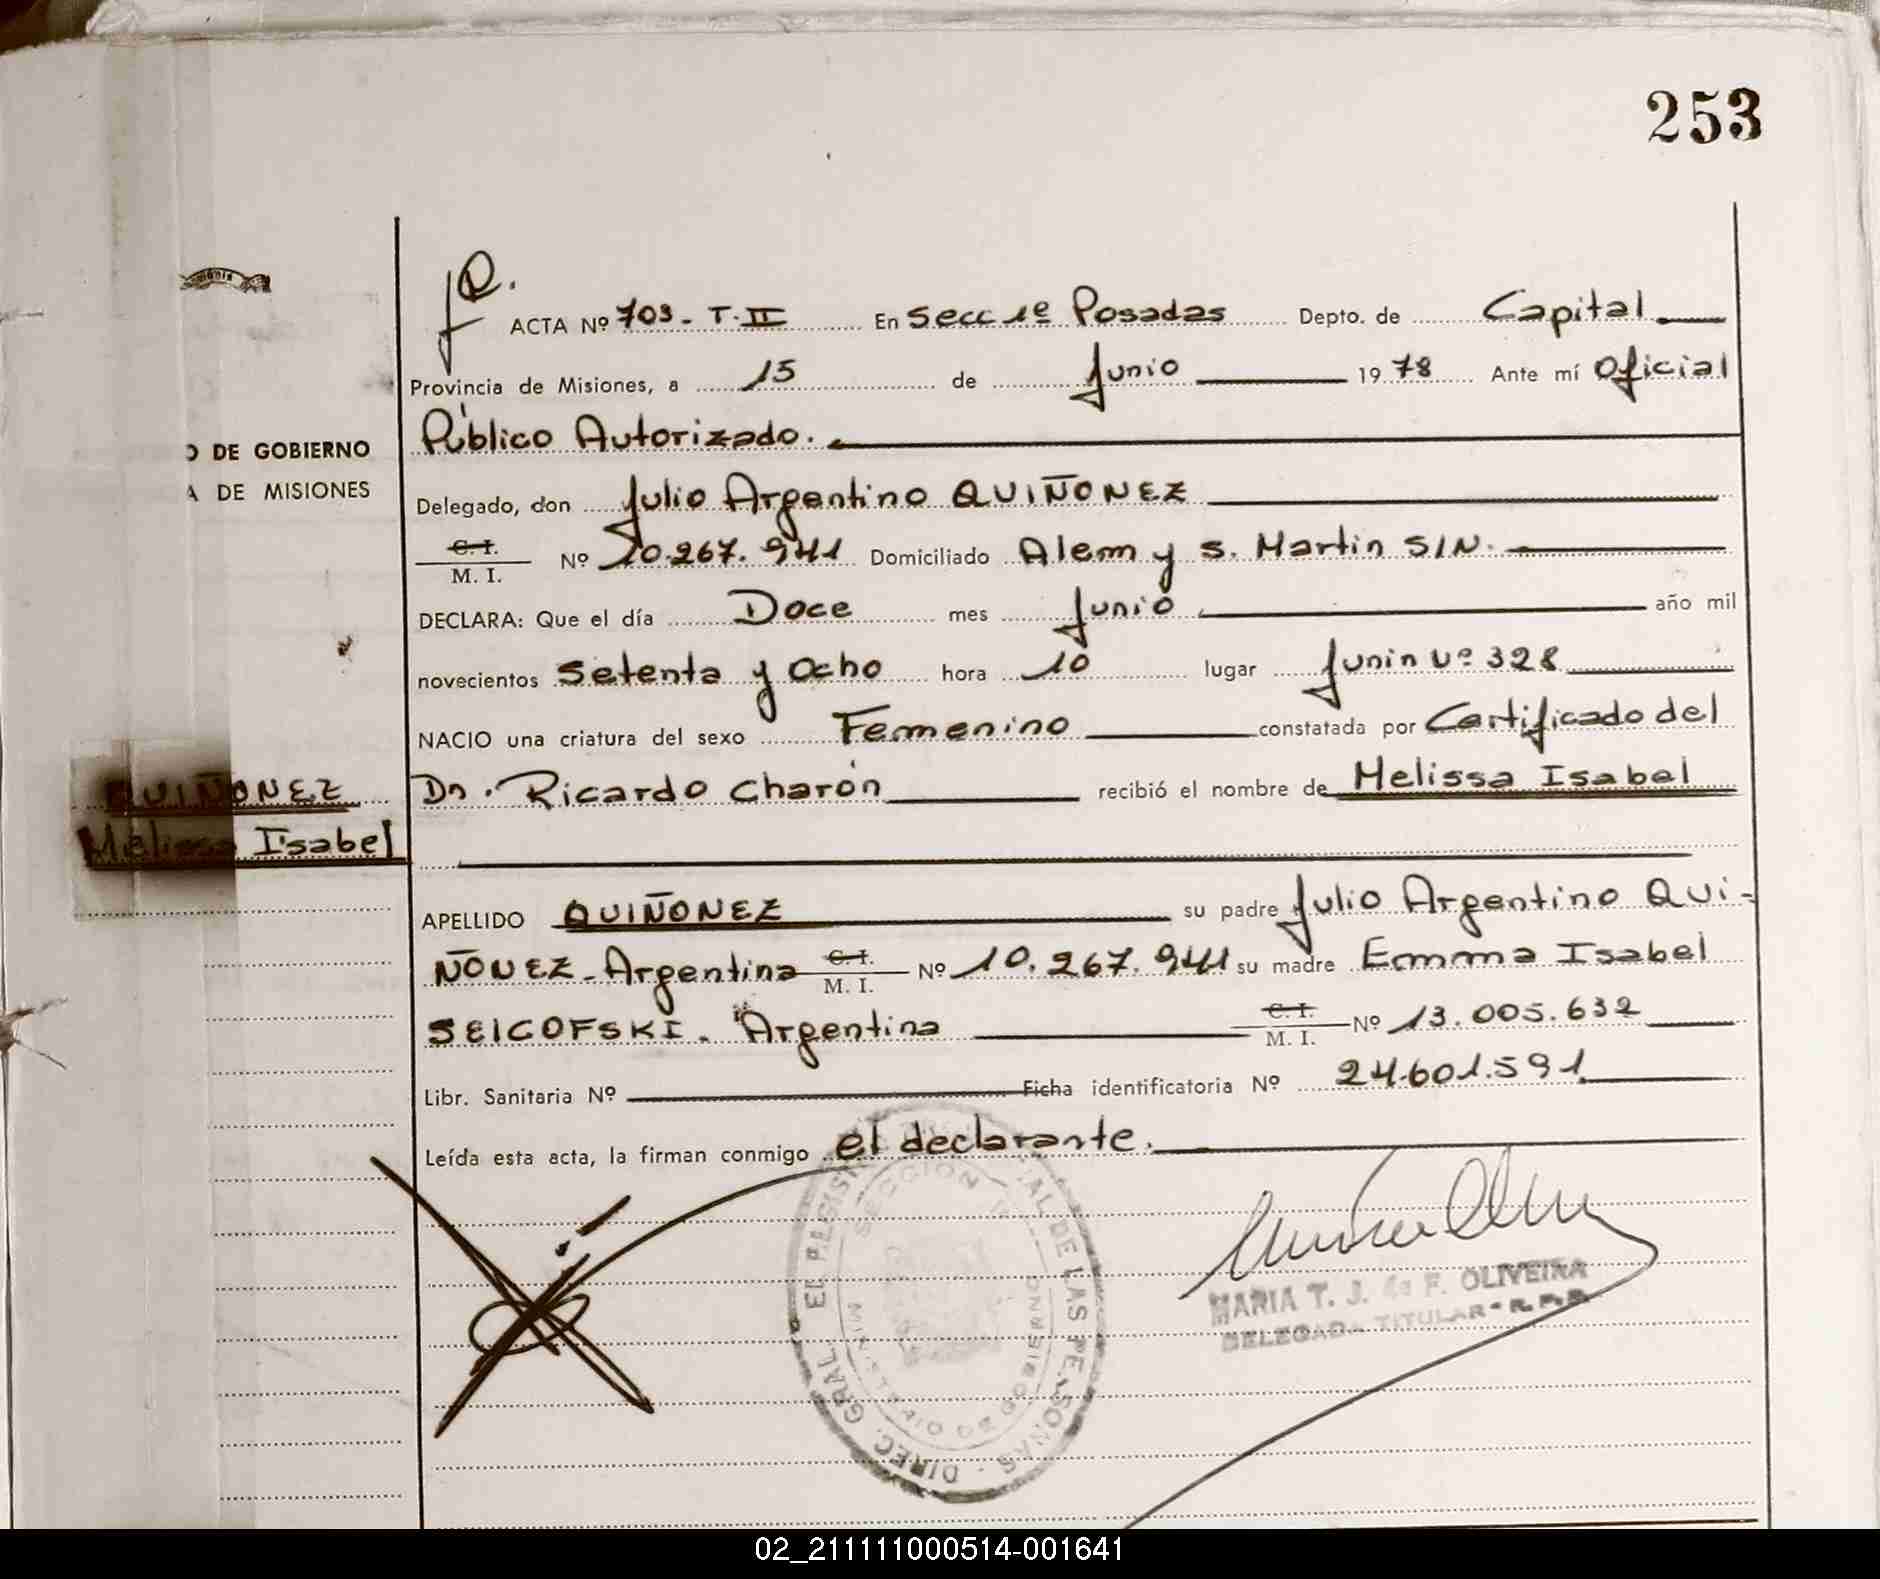 253
ACTA Nº 703 - T. II En Secc 1º Posadas Depto. de Capital
Provincia de Misiones, a 15 de Junio 1978 Ante mí Oficial
Público Autorizado.
O DE GOBIERNO
A DE MISIONES
Delegado, don Julio Argentino QUIÑONEZ
C. I.
M. I. Nº 10.267.941 Domiciliado Alem y S. Martin S/N.
DECLARA: Que el día Doce mes Junio año mil
novecientos Setenta y Ocho hora 10 lugar Junin Nº 328
NACIO una criatura del sexo Femenino constatada por Certificado del
QUIÑONEZ
Melissa Isabel
Dr. Ricardo Charón recibió el nombre de Melissa Isabel
APELLIDO QUIÑONEZ su padre Julio Argentino QUI-
ÑONEZ - Argentina C. I. M. I. Nº 10.267.941 su madre Emma Isabel
SEICOFSKI. Argentina C. I. M. I. Nº 13.005.632
Libr. Sanitaria Nº Ficha identificatoria Nº 24.601.591
Leída esta acta, la firman conmigo el declarante.
DIREC. GRAL. DE LAS PERSONAS
SECCION
MARIA T. J. de F. OLIVEIRA
DELEGADA TITULAR - R.P.P.
02_211111000514-001641